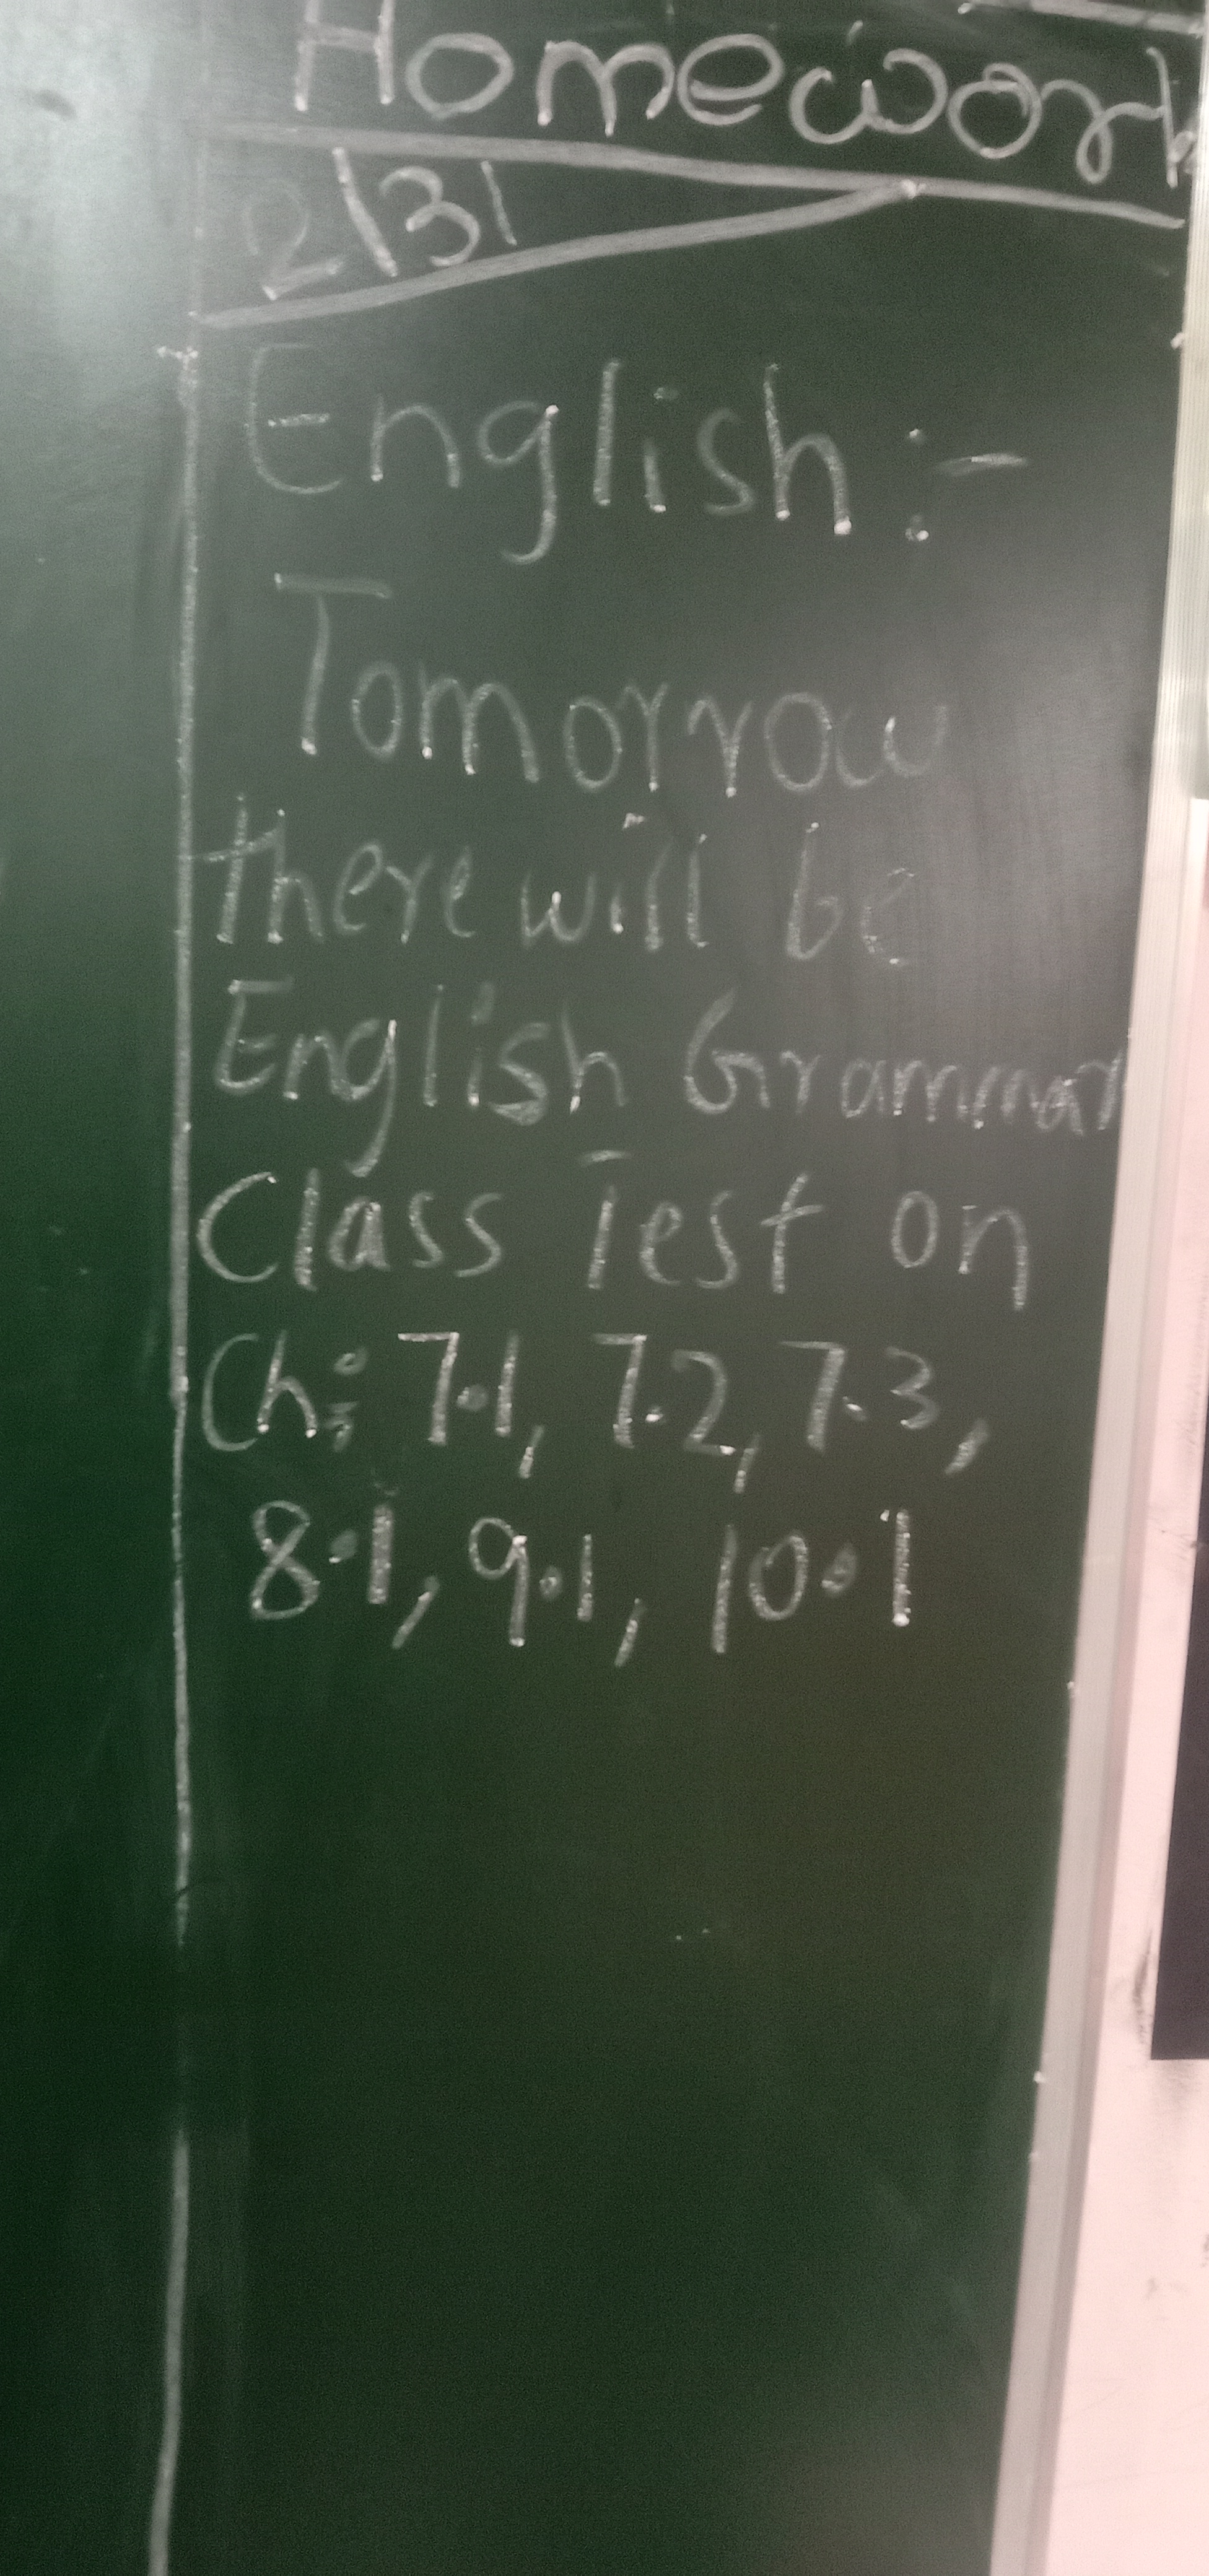 Homework
2\3\
English :-
Tomorrow
there will be
English Grammar
Class Test on
Ch: 7.1, 7.2, 7.3,
8.1, 9.1, 10.1